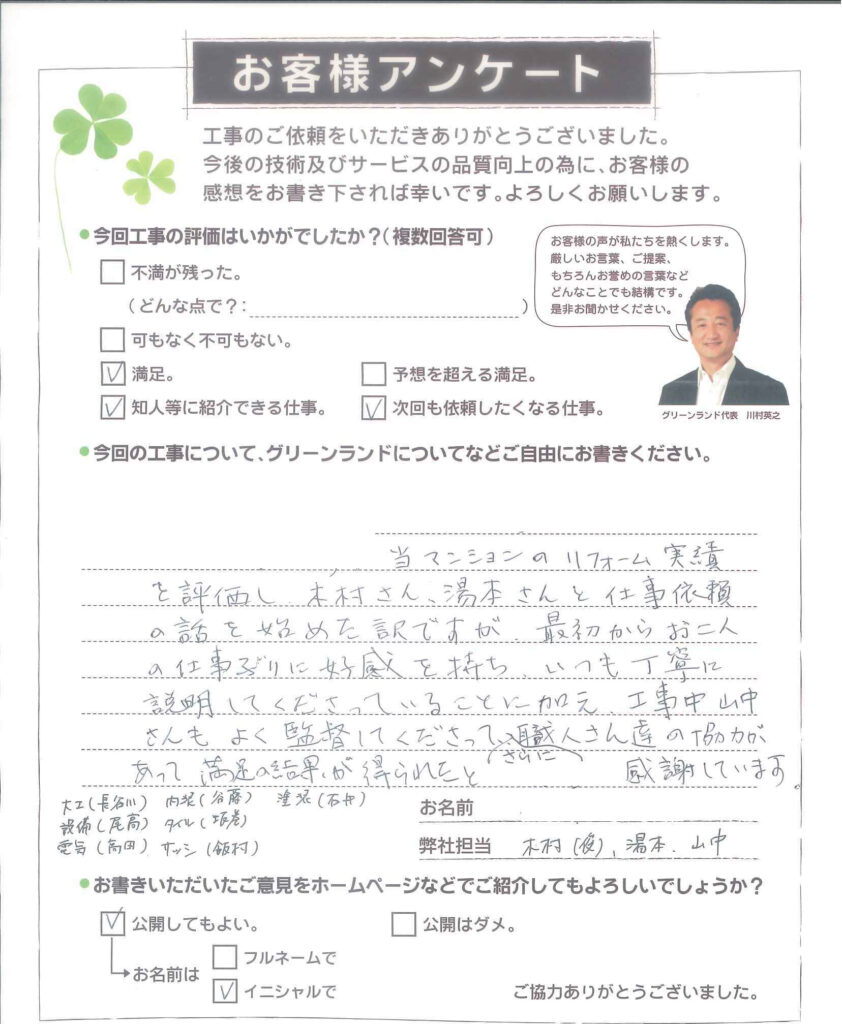 お客様アンケート
工事のご依頼をいただきありがとうございました。
今後の技術及びサービスの品質向上の為に、お客様の
感想をお書き下されば幸いです。よろしくお願いします。
●今回工事の評価はいかがでしたか?(複数回答可)
不満が残った。
(どんな点で?: )
可もなく不可もない。
満足。
予想を超える満足。
知人等に紹介できる仕事。
次回も依頼したくなる仕事。
お客様の声が私たちを熱くします。
厳しいお言葉、ご提案、
もちろんお誉めの言葉など
どんなことでも結構です。
是非お聞かせください。
グリーンランド代表 川村英之
●今回の工事について、グリーンランドについてなどご自由にお書きください。
当マンションのリフォーム実績
を評価し、木村さん、湯本さんと仕事依頼
の話を始めた訳ですが、最初からお二人
の仕事ぶりに好感を持ち、いつも丁寧に
説明してくださっていることに加え、工事中山中
さんもよく監督してくださって、さらに職人さん達の協力が
あって満足の結果が得られたと感謝しています。
大工(長谷川) 内装(谷藤) 塗装(石井)
設備(尾高) タイル(坂巻)
電気(高田) サッシ(飯村)
お名前
弊社担当 木村(俊)、湯本、山中
●お書きいただいたご意見をホームページなどでご紹介してもよろしいでしょうか?
公開してもよい。
公開はダメ。
お名前は
フルネームで
イニシャルで
ご協力ありがとうございました。